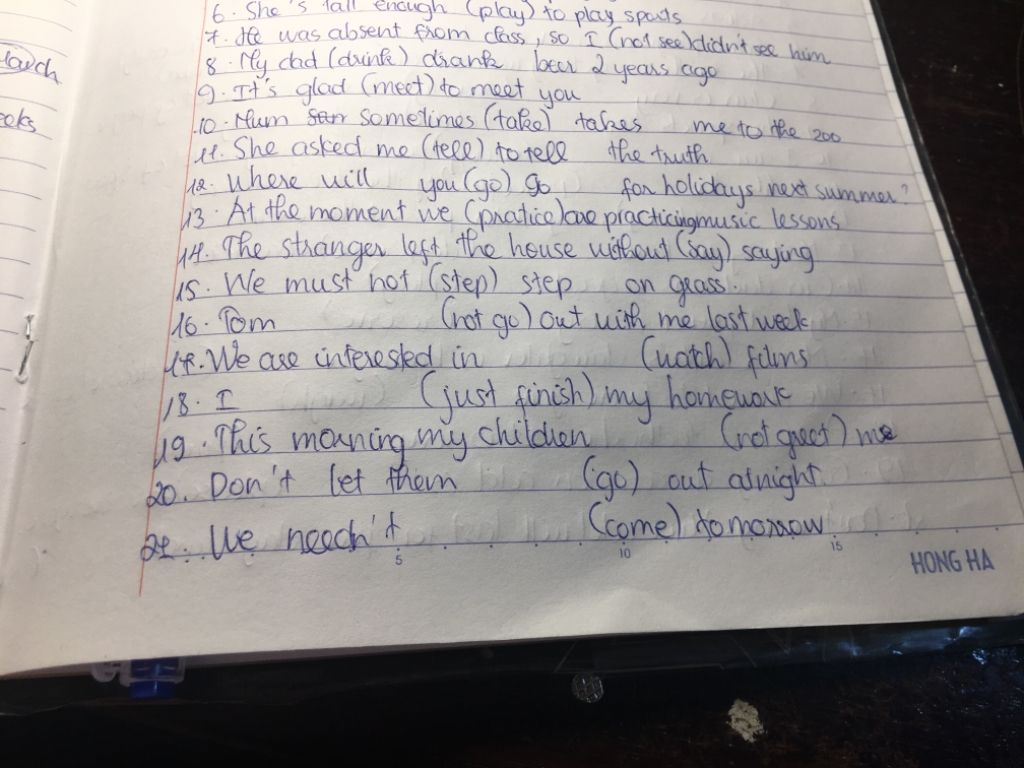 oach
eeks
6. She's tall enough (play) to play sports
7. He was absent from class, so I (not see) didn't see him
8. My dad (drink) drank beer 2 years ago
9. It's glad (meet) to meet you
10. Mum sometimes (take) takes me to the zoo
11. She asked me (tell) to tell the truth
12. Where will you (go) go for holidays next summer?
13. At the moment we (pratice) are practicing music lessons
14. The stranger left the house without (say) saying
15. We must not (step) step on grass.
16. Tom (not go) out with me last week
17. We are interested in (watch) films
18. I (just finish) my homework
19. This morning my children (not greet) me
20. Don't let them (go) out at night
21. We needn't (come) tomorrow
5 10 15
HONG HA